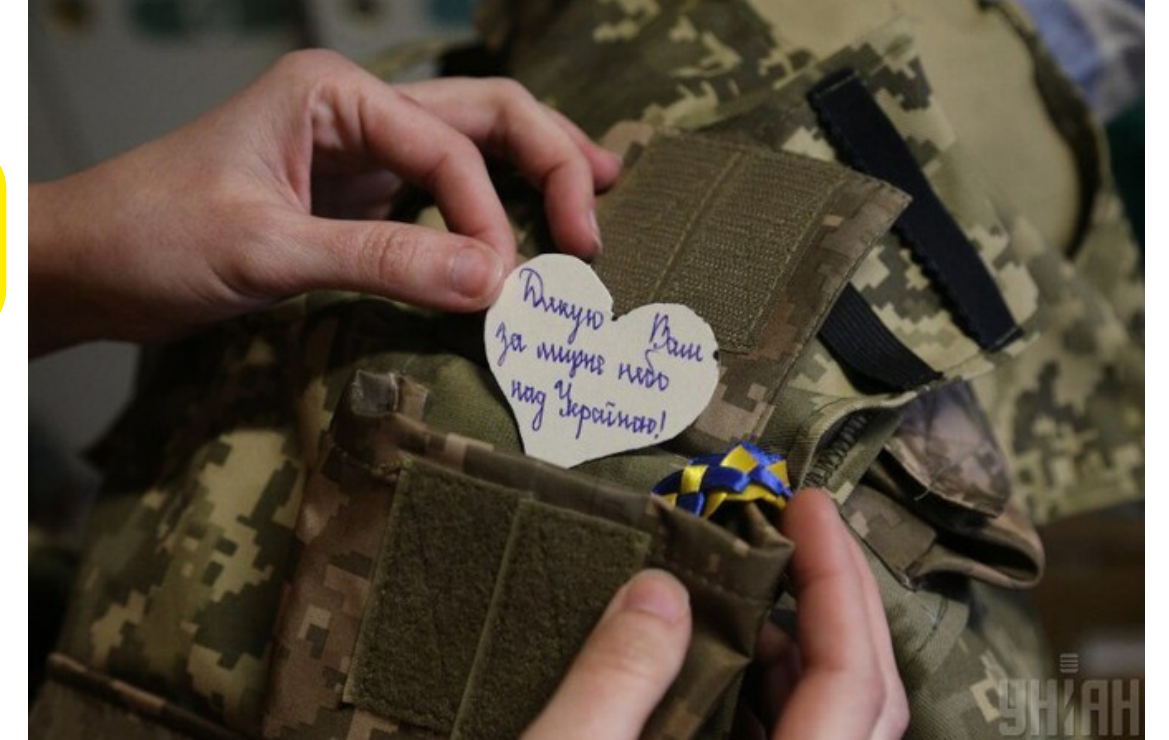 Дякую Вам
за мирне небо
над Україною!
УНІАН